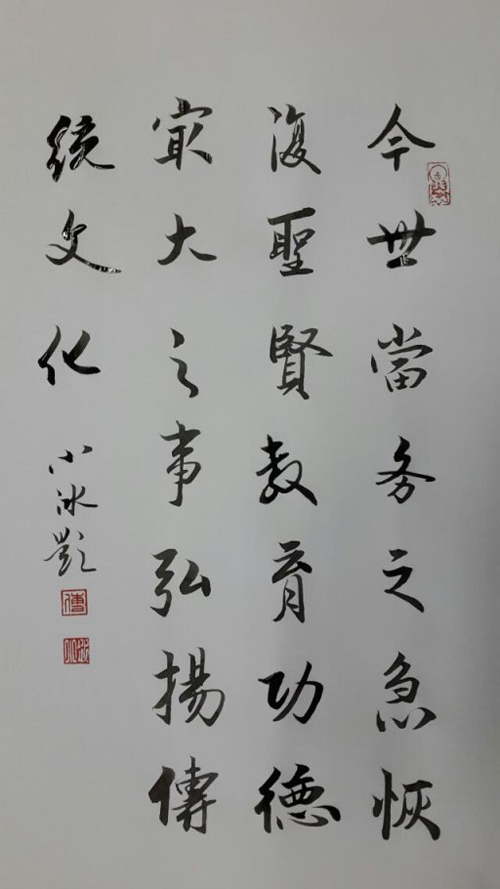 今世當务之急恢
復聖賢教育功德
冣大之事弘揚傳
统文化
小冰題
傅